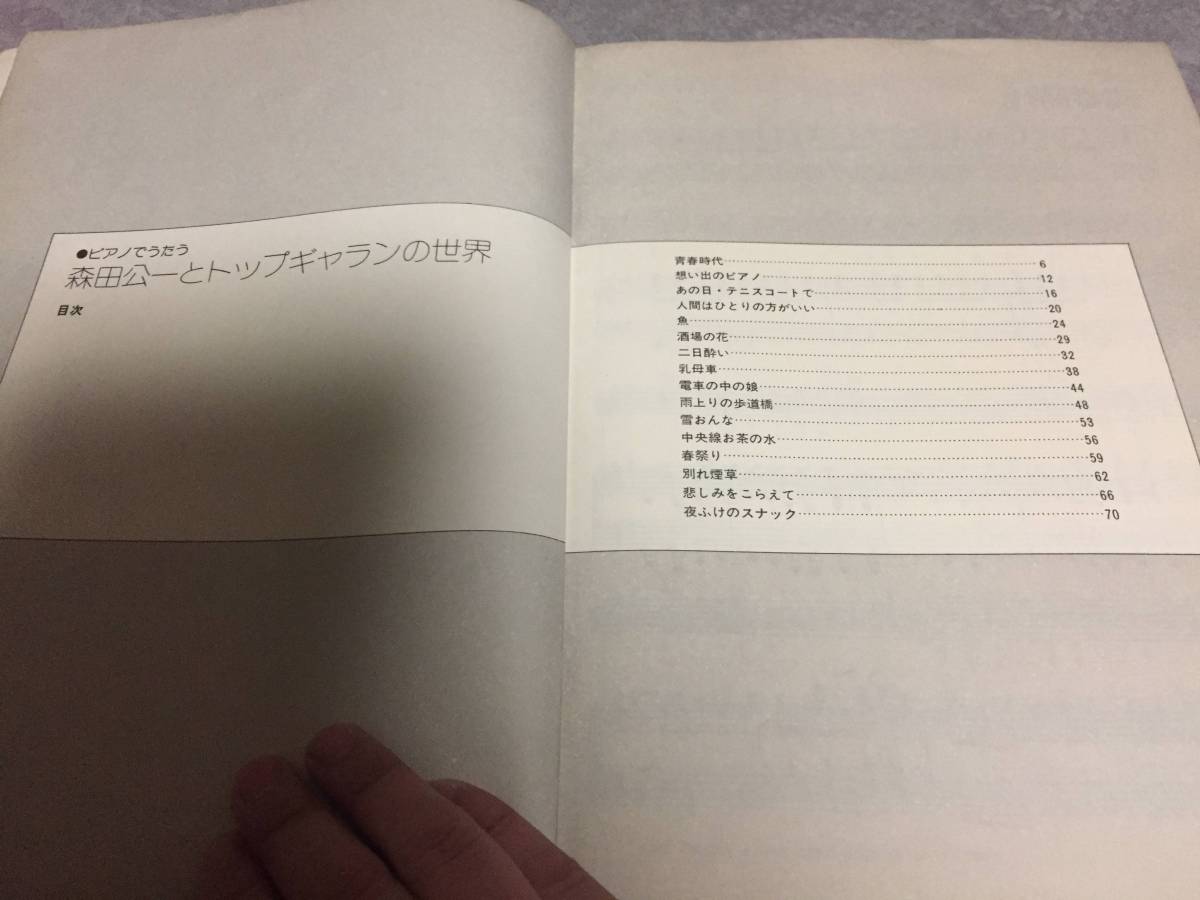 ●ピアノでうたう
森田公一とトップギャランの世界
目次
青春時代 6
想い出のピアノ 12
あの日・テニスコートで 16
人間はひとりの方がいい 20
魚 24
酒場の花 29
二日酔い 32
乳母車 38
電車の中の娘 44
雨上りの歩道橋 48
雪おんな 53
中央線お茶の水 56
春祭り 59
別れ煙草 62
悲しみをこらえて 66
夜ふけのスナック 70